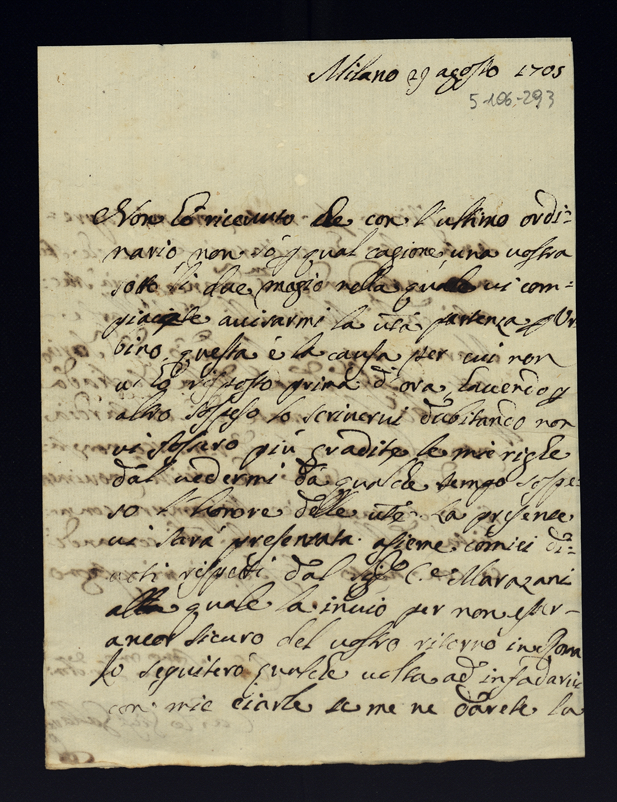 Milano 29 agosto 1705
5-106-293
Non hò riceuuto che con l'ultimo ordi=
nario, non sò p qual cagione, una uostra
sotto li due magio nella quale ui com=
piacete auisarmi la ura partenza p Ur
bino, questa è la causa per cui non
ui hò risposto prima d'ora hauendo p
altro sospeso lo scriuerui dubitando non
ui fossero più gradite le mie righe
dal uedermi da qualche tempo sospe=
so l'honore delle ure. La presente
ui sarà presentata assieme co miei di=
uoti rispetti dal Sigr C.e Marazani
alla quale la inuio per non esser
ancor sicuro del uostro ritorno in Roma
Io seguiterò qualche uolta ad infadarui
con mie ciarle se me ne darete la